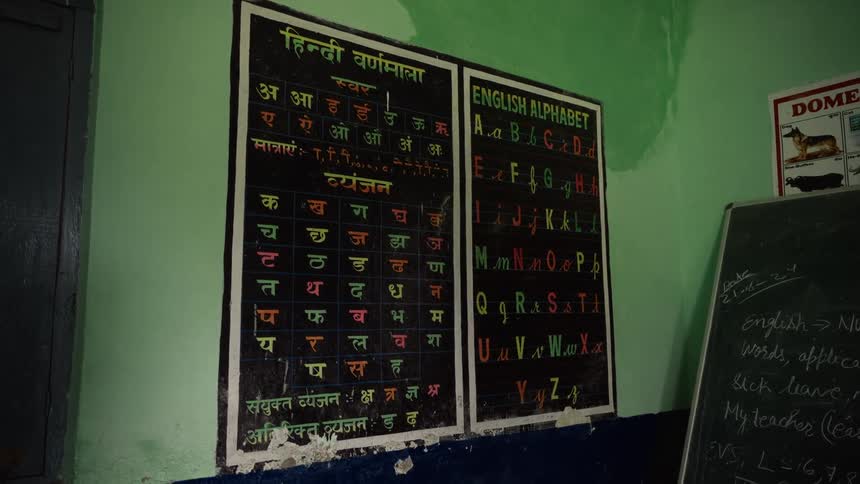 हिन्दी वर्णमाला
स्वर
अ आ इ ई उ ऊ ऋ
ए ऐ ओ औ अं अः
मात्राएं :-
व्यंजन
क ख ग घ ङ
च छ ज झ ञ
ट ठ ड ढ ण
त थ द ध न
प फ ब भ म
य र ल व श
ष स ह
संयुक्त व्यंजन : क्ष त्र ज्ञ श्र
अतिरिक्त व्यंजन : ड़ ढ़
ENGLISH ALPHABET
A a B b C c D d
E e F f G g H h
I i J j K k L l
M m N n O o P p
Q q R r S s T t
U u V v W w X x
Y y Z z
DOME
Date
English →
Words, applica
Sick leave,
My teacher (lea
EVS, L = 6, 7, 8